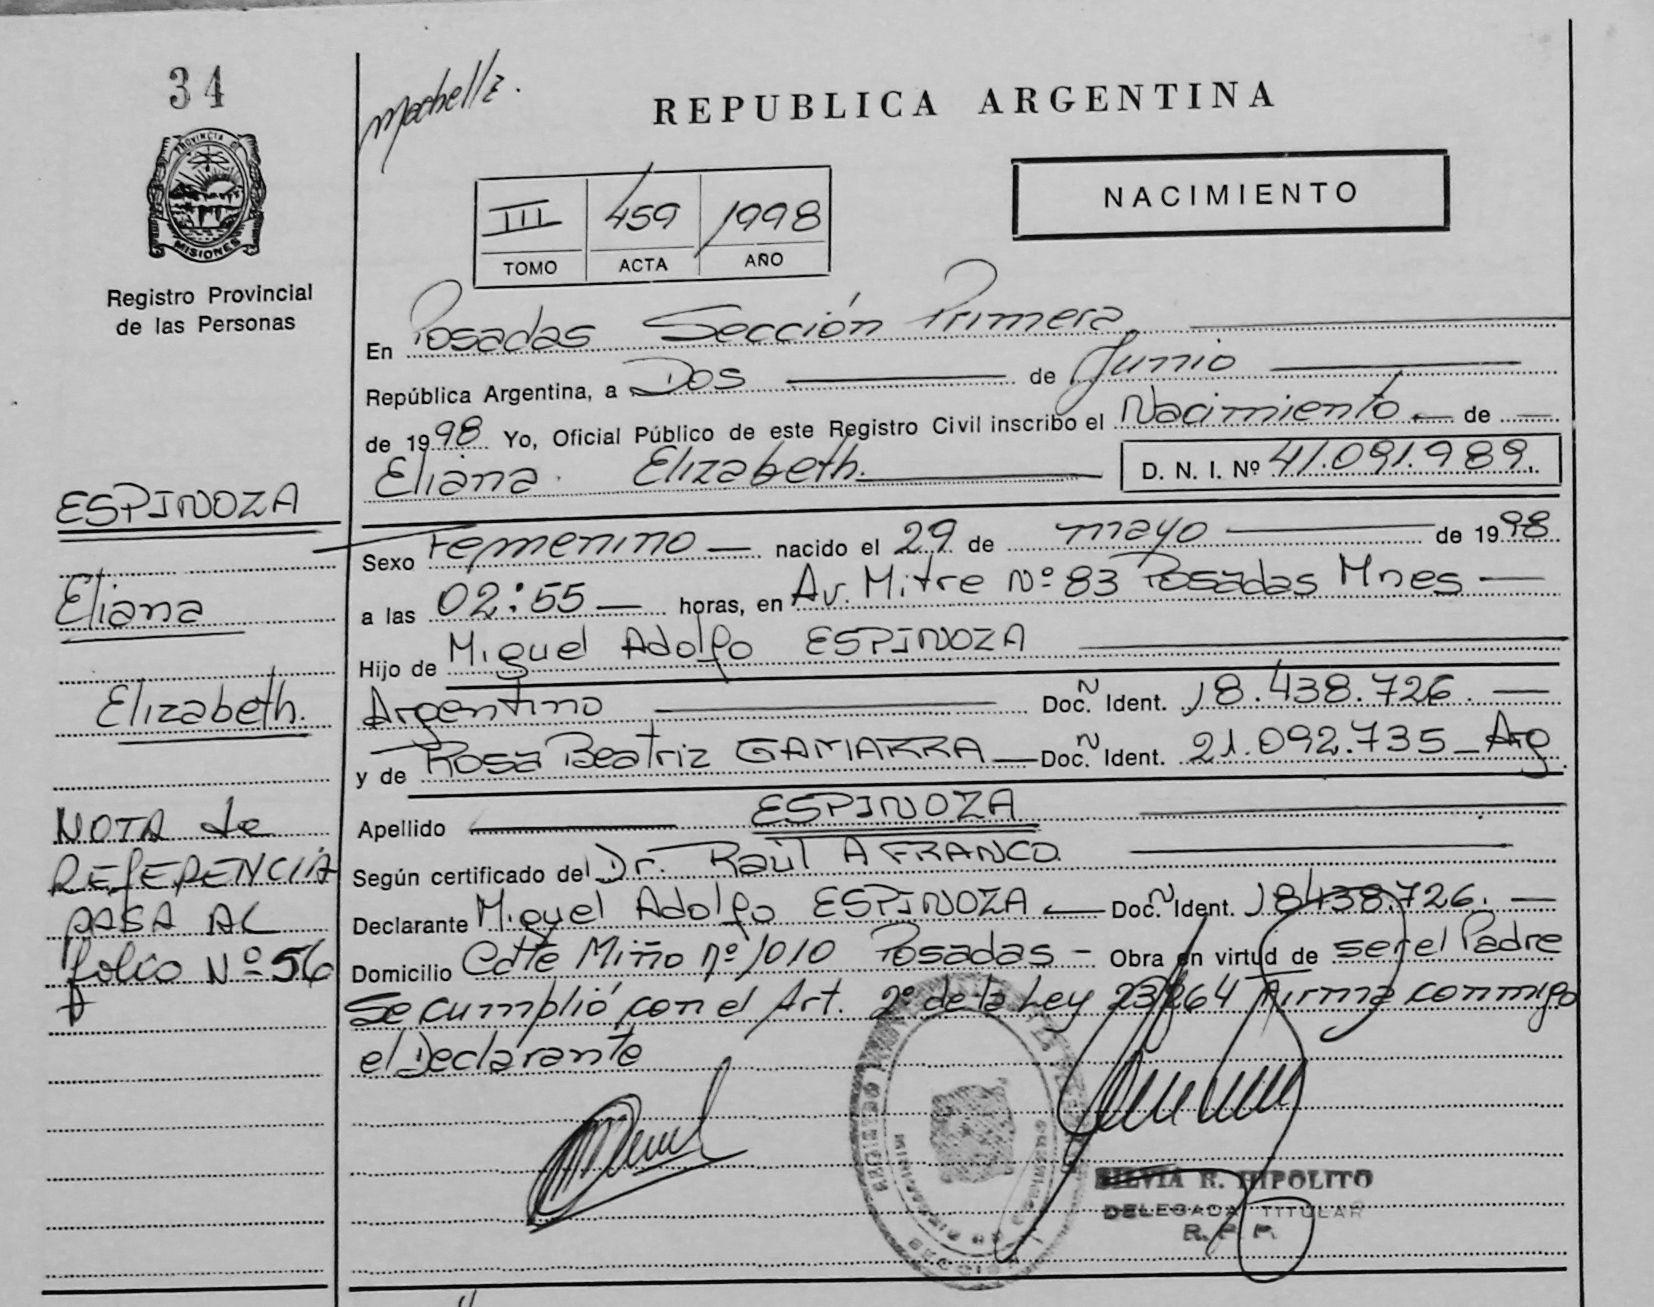 34
PROVINCIA DE
MISIONES
Registro Provincial
de las Personas
REPUBLICA ARGENTINA
NACIMIENTO
III 459 1998
TOMO ACTA AÑO
En Posadas Sección Primera
República Argentina, a Dos de Junio
de 1998 Yo, Oficial Público de este Registro Civil inscribo el Nacimiento de
Eliana Elizabeth D. N. I. Nº 41.091.989.
ESPINOZA
Eliana
Elizabeth.
NOTA de
REFERENCIA
PASA AL
folio Nº 56
Sexo Femenino nacido el 29 de mayo de 1998
a las 02:55 horas, en Av. Mitre Nº 83 Posadas Mnes
Hijo de Miguel Adolfo ESPINOZA
Argentino Doc. N Ident. 18.438.726.
y de Rosa Beatriz GAMARRA Doc. N Ident. 21.092.735 Arg
Apellido ESPINOZA
Según certificado del Dr. Raúl A FRANCO.
Declarante Miguel Adolfo ESPINOZA Doc. N Ident. 18438.726.
Domicilio Cdte Miño nº 1010 Posadas - Obra en virtud de ser el Padre
Se cumplió con el Art. 2º de la Ley 23264 Firma conmigo
el Declarante
SILVIA R. HIPOLITO
DELEGADA TITULAR
R. P. P.